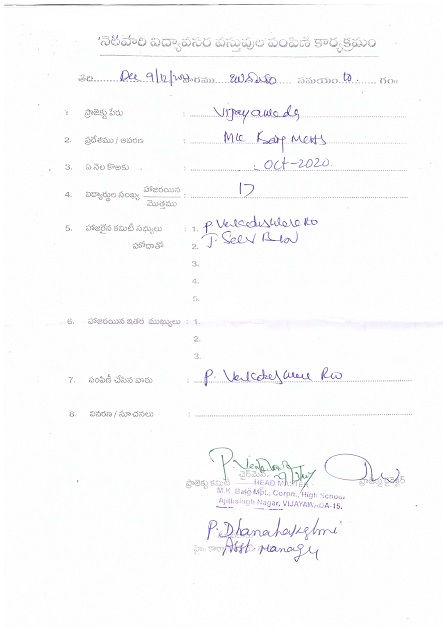 'నేటిపారి విద్యావసర వస్తువుల పంపిణీ కార్యక్రమం
తేది Dec 9/12/ వారము సమయం 10 గం
1. ప్రాజెక్టు పేరు : Vijayawada
2. ప్రదేశము / ఆవరణ : MK Baig MCHS
3. ఏ నెల కొరకు : Oct-2020
4. విద్యార్థుల సంఖ్య హాజరయిన : 17
మొత్తము
5. హాజరైన కమిటీ సభ్యులు : 1. P. Venkateswara Rao
హోదాతో 2. J.
3.
4.
5.
6. హాజరయిన ఇతర ముఖ్యులు : 1.
2.
3.
7. పంపిణీ చేసిన వారు : P. Venkateswara Rao
8. వివరణ / సూచనలు :
ప్రాజెక్టు కమిటీ ఛైర్మెన్ ప్రాజెక్టు డైరెక్టర్
HEAD MASTER
M.K. Baig Mpl., Corpn., High School
Ajithsingh Nagar, VIJAYAWADA-15.
P. Dhanalakshmi
Asst Manager